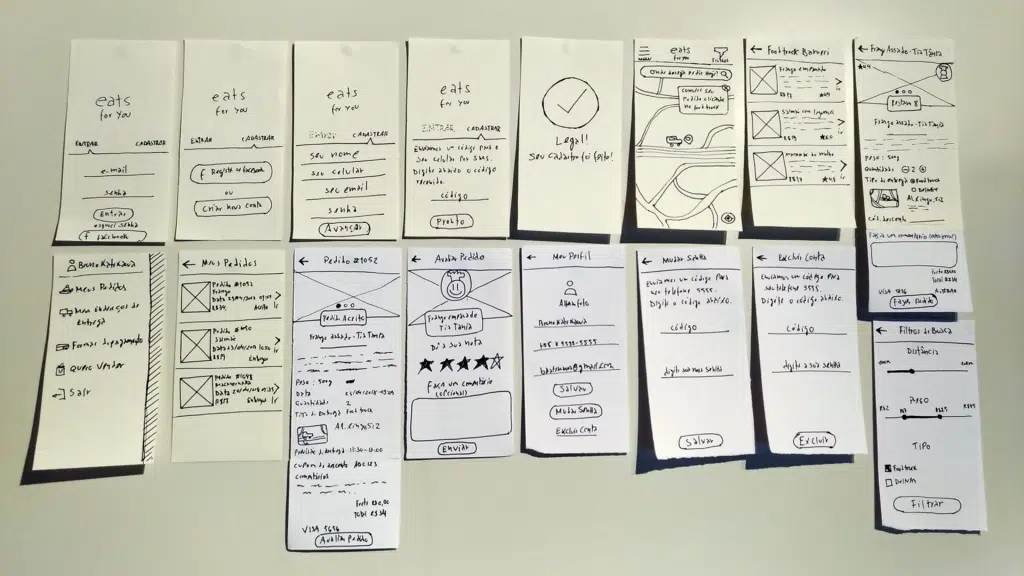 eats
for you
ENTRAR CADASTRAR
e-mail
senha
Entrar
esqueci senha
f facebook
eats
for you
ENTRAR CADASTRAR
f Registre co facebook
ou
Criar nova conta
eats
for you
ENTRAR CADASTRAR
seu nome
seu celular
seu email
senha
Avançar
eats
for you
ENTRAR CADASTRAR
Enviamos um código para o
seu celular por SMS.
Digite abaixo o código
código
Pronto
Legal!
Seu cadastro foi feito!
eats
for you
Filtros
Onde deseja pedir hoje?
comece seu
pedido clicando
no foodtruck
Foodtruck Barueri
Frango empanado
R$13
Salmão com legumes
R$14
Ir
R$14
Ir
Frang Assado - Tia Tânia
Restam 8
Frango Assado - Tia Tânia
Peso: 500g
Quantidade 2
Tipo de entrega Foodtruck
Delivery
Al. Xingu, 512
Cód. desconto
Faça um comentário (opcional)
Frete
VISA 5656 ALTERAR
Fazer Pedido
Bruno Kate Kawa
Meus Pedidos
Meus Endereços de
Entrega
Formas de pagamento
Quero Vender
Sair
Meus Pedidos
Pedido #1052
Frango
R$34 Aceito Ir
Pedido
Salmão
R$14 Entregue
Pedido
R$13 Entregue Ir
Pedido #1052
Pedido Aceito
Frango Assado - Tia Tânia
Peso: 500g
Data
Quantidade 2
Tipo de Entrega Foodtruck
Al. Xingu 512
Cupom de desconto ABC123
Comentários
Frete
Total R$34
VISA 5656
Avaliar Pedido
Avaliar Pedido
Frango empanado
Tia Tania
Dê a sua nota
Faça um comentário
(opcional)
Enviar
Meu Perfil
Alterar foto
Bruno Kate Kawa
Salvar
Mudar Senha
Excluir Conta
Mudar Senha
Enviamos um código para
seu telefone 5555.
Digite o código abaixo.
código
digite sua nova senha
Salvar
Excluir Conta
Enviamos um código para
seu telefone 5555.
Digite o código abaixo.
código
digite a sua senha
Excluir
Filtros de Busca
Distância
Preço
TIPO
Foodtruck
Filtrar